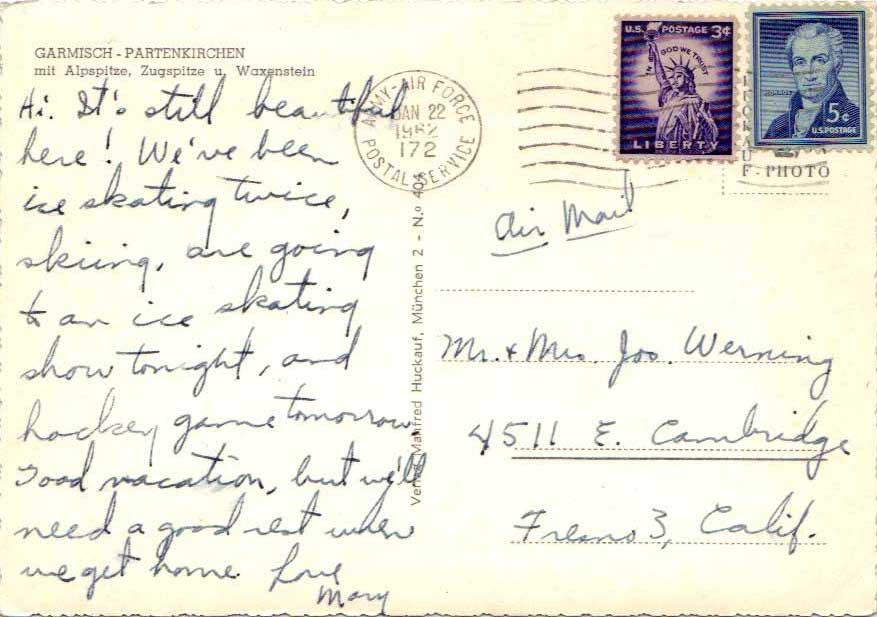 GARMISCH - PARTENKIRCHEN
mit Alpspitze, Zugspitze u. Waxenstein
Hi. It's still beautiful
here! We've been
ice skating twice,
skiing, are going
to an ice skating
show tonight, and
hockey game tomorrow.
Good vacation, but we'll
need a good rest when
we get home. Love
Mary
ARMY-AIR FORCE
JAN 22
1962
172
POSTAL SERVICE
Verlag Manfred Huckauf, München 2 - N.º 404
U.S. POSTAGE 3¢
IN GOD WE TRUST
LIBERTY
MONROE
5¢
U.S. POSTAGE
HUCKAUF
F - PHOTO
Air Mail
Mr. + Mrs. Jos. Werning
4511 E. Cambridge
Fresno 3, Calif.